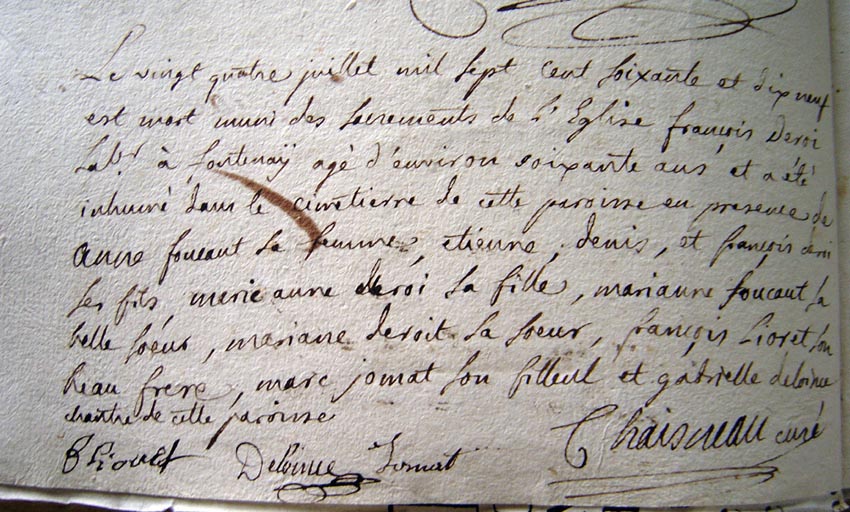 Le vingt quatre juillet mil sept cent soixante et dix neuf
est mort muni des sacrements de l'Eglise françois deroi
labr à fontenaÿ agé d'environ soixante ans et a été
inhumé dans le cimetierre de cette paroisse en presence de
anne foucaut sa femme, etienne, denis, et françois deroi
ses fils, marie anne deroi sa fille, marianne foucaut sa
belle soeur, mariane deroit sa soeur, françois Lioret son
beau frere, marc jomat son filleul et gabrielle deloince
chantre de cette paroisse
Deloince Jomat Chaisneau curé